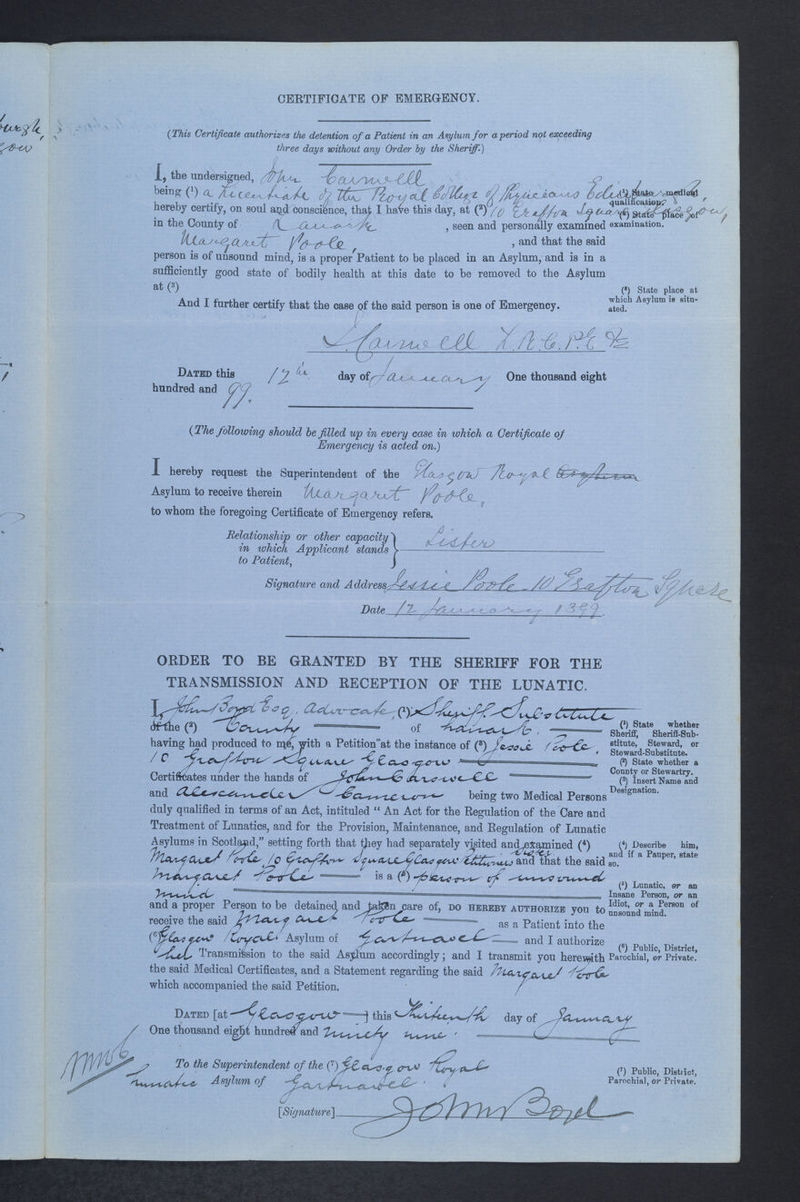 CERTIFICATE OF EMERGENCY.
(This Certificate authorizes the detention of a Patient in an Asylum for a period not exceeding
three days without any Order by the Sheriff.)
I, the undersigned, John Carswell
being (1) a Licentiate of the Royal College of Physicians Edinburgh,
(1) State medical
qualification.
hereby certify, on soul and conscience, that I have this day, at (2) 10 Grafton Square Glasgow,
(2) State place of
examination.
in the County of Lanark , seen and personally examined
Margaret Poole, , and that the said
person is of unsound mind, is a proper Patient to be placed in an Asylum, and is in a
sufficiently good state of bodily health at this date to be removed to the Asylum
at (3)
(3) State place at
which Asylum is situ-
ated.
And I further certify that the case of the said person is one of Emergency.
J. Carswell L.R.C.P.E &c
DATED this 12th day of January One thousand eight
hundred and 99.
(The following should be filled up in every case in which a Certificate of
Emergency is acted on.)
I hereby request the Superintendent of the Glasgow Royal Asylum
Asylum to receive therein Margaret Poole,
to whom the foregoing Certificate of Emergency refers.
Relationship or other capacity
in which Applicant stands
to Patient,
Sister
Signature and Address Jessie Poole 10 Grafton Square
Date 12 January 1899
ORDER TO BE GRANTED BY THE SHERIFF FOR THE
TRANSMISSION AND RECEPTION OF THE LUNATIC.
I, John Boyd Esq. Advocate, (1) Sheriff Substitute
of the (2) County of Lanark.
(1) State whether
Sheriff, Sheriff-Sub-
stitute, Steward, or
Steward-Substitute.
having had produced to me, with a Petition at the instance of (3) Jessie Poole,
10 Grafton Square Glasgow
(2) State whether a
County or Stewartry.
Certificates under the hands of John Carswell
(3) Insert Name and
Designation.
and Alexander Cameron being two Medical Persons
duly qualified in terms of an Act, intituled “ An Act for the Regulation of the Care and
Treatment of Lunatics, and for the Provision, Maintenance, and Regulation of Lunatic
Asylums in Scotland,” setting forth that they had separately visited and examined (4)
(4) Describe him,
and if a Pauper, state
so.
Margaret Poole, 10 Grafton Square Glasgow and that the said
Margaret Poole is a (5) person of unsound
mind
(5) Lunatic, or an
Insane Person, or an
Idiot, or a Person of
unsound mind.
and a proper Person to be detained and taken care of, DO HEREBY AUTHORIZE you to
receive the said Margaret Poole as a Patient into the
(6) Glasgow Royal Asylum of Gartnavel and I authorize
(6) Public, District,
Parochial, or Private.
her Transmission to the said Asylum accordingly; and I transmit you herewith
the said Medical Certificates, and a Statement regarding the said Margaret Poole
which accompanied the said Petition.
DATED [at Glasgow ] this Thirteenth day of January
One thousand eight hundred and ninety nine.
To the Superintendent of the (7) Glasgow Royal
(7) Public, District,
Parochial, or Private.
Lunatic Asylum of Gartnavel.
[Signature] John Boyd